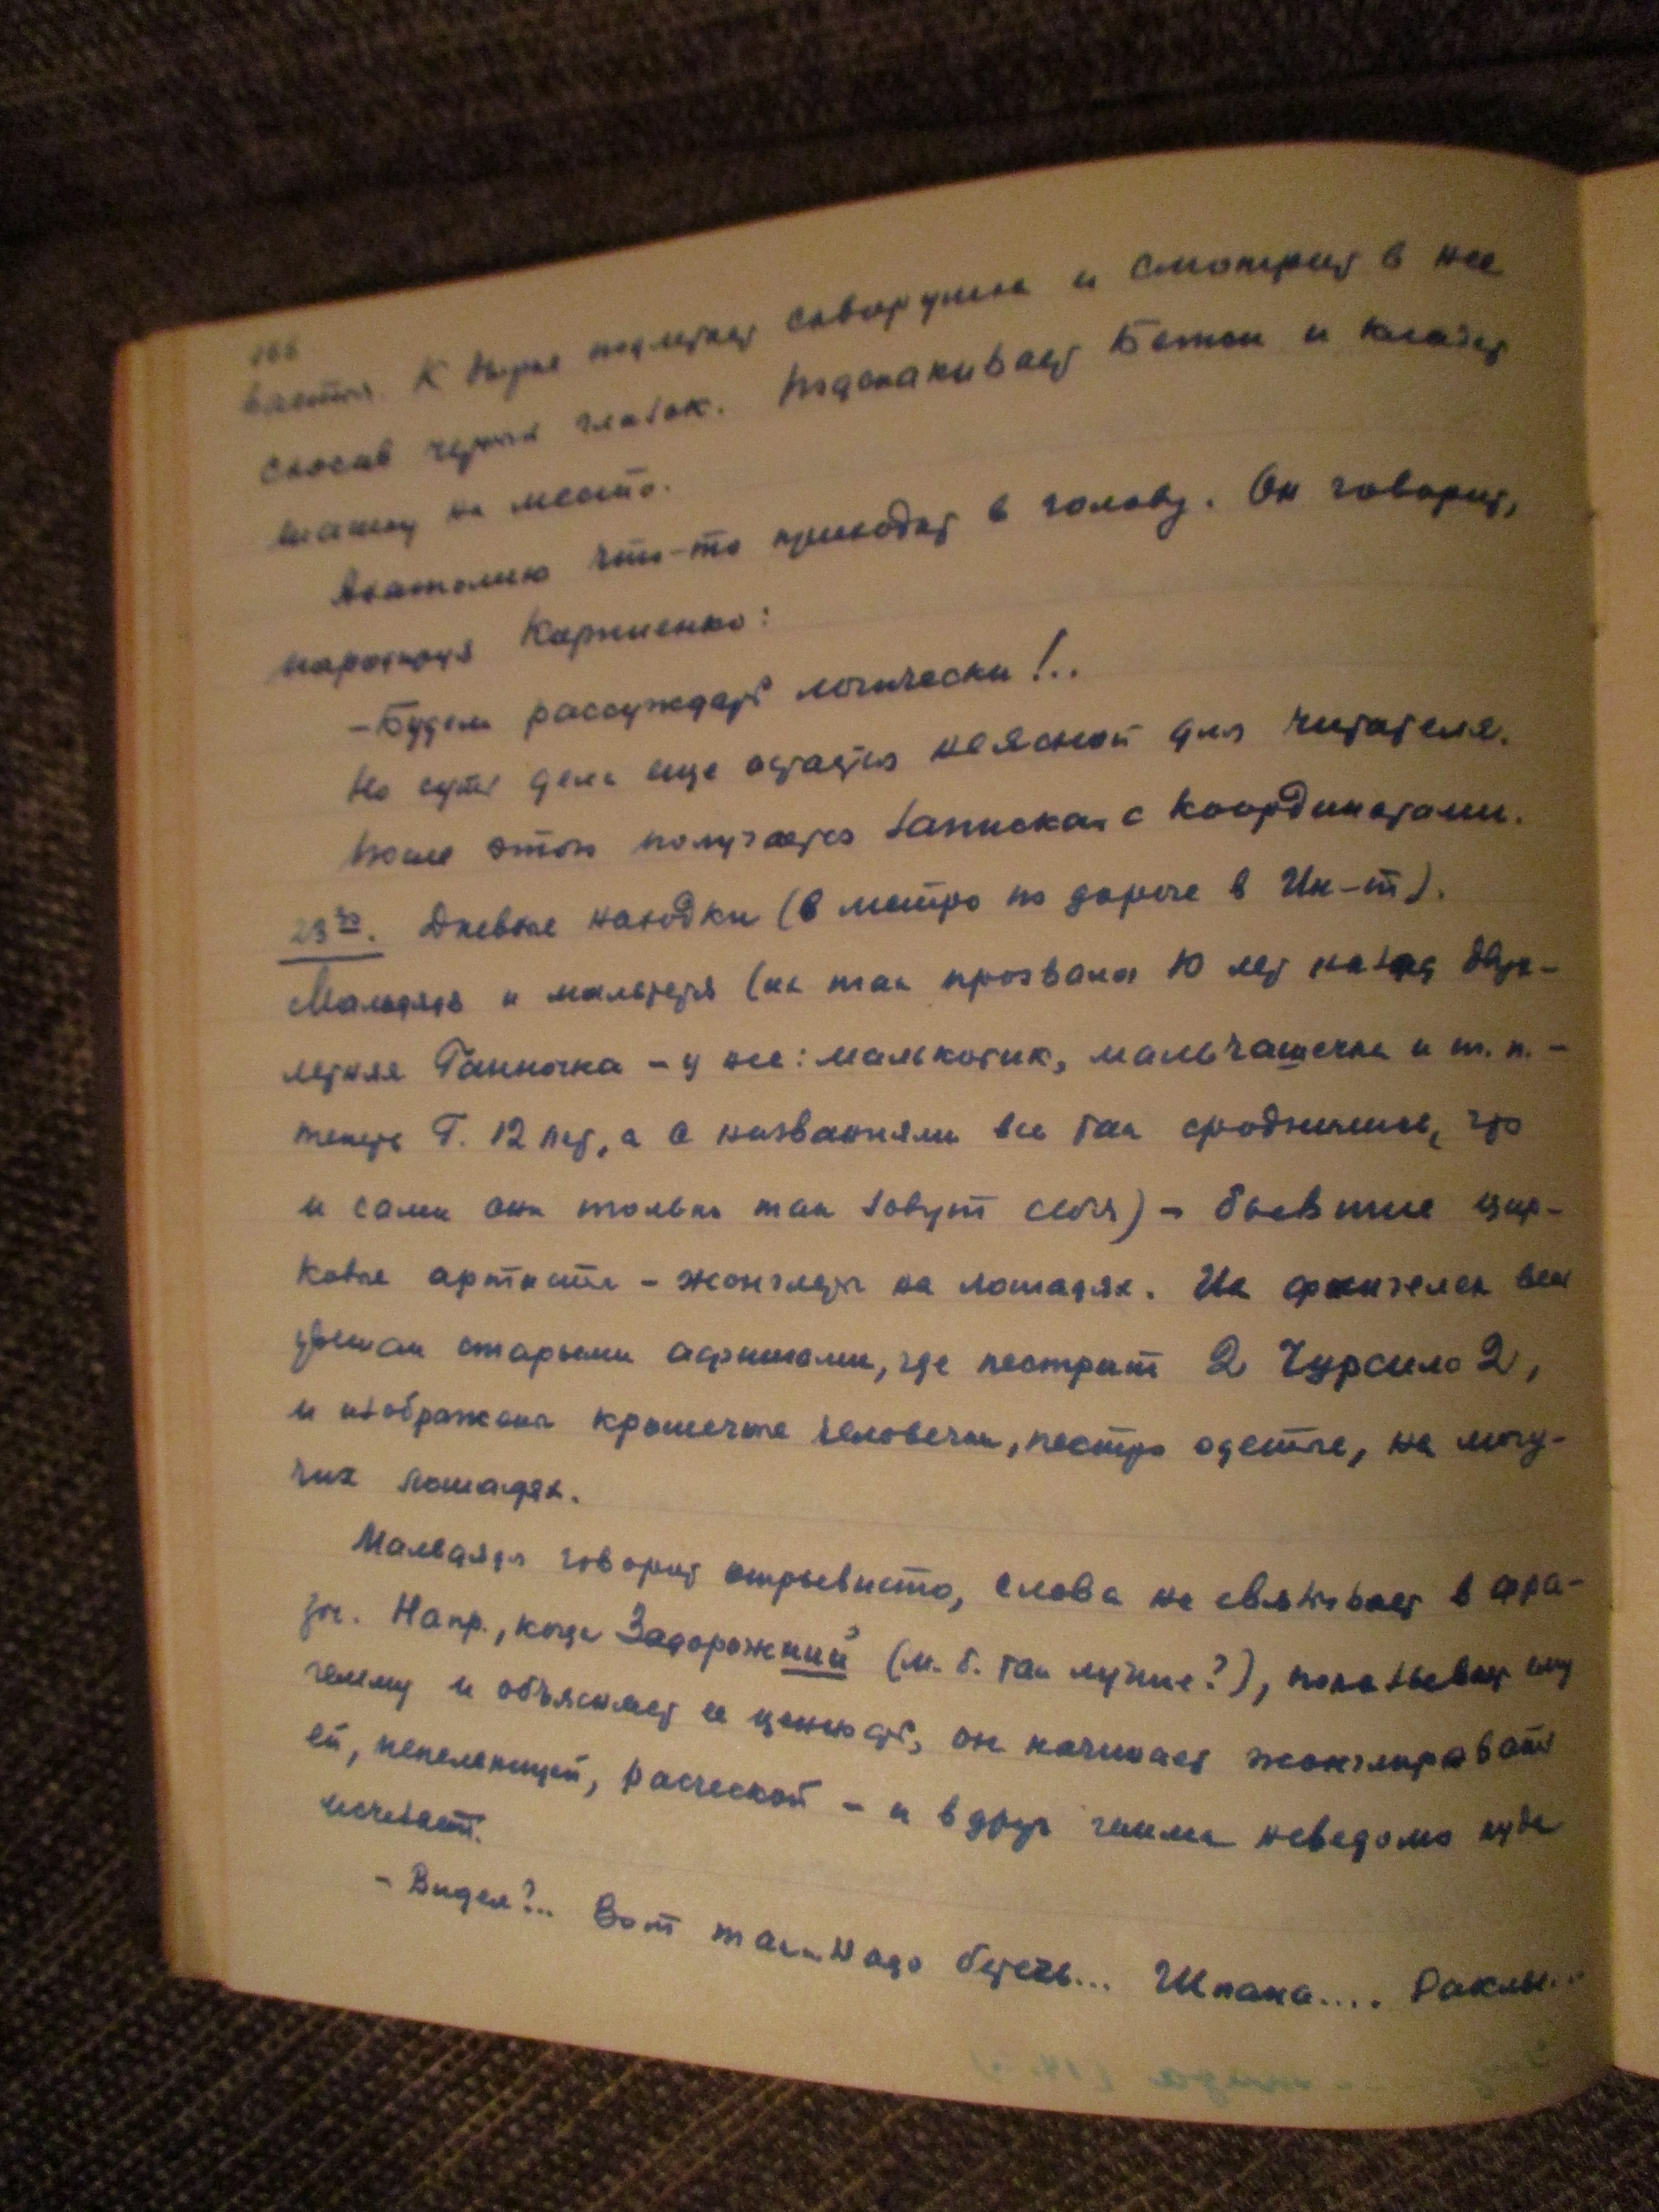 166
вается. К дырке подлетает скворушка и смотрит в нее
скосив черный глазок. Подскакивает Бетон и кладет
чашку на место.
Анатолию что-то приходит в голову. Он говорит,
пародируя Карпиенко:
- Будем рассуждать логически!..
Но суть дела еще остается неясной для читателя.
После этого получается записка с координатами.
23 30. Дневные находки (в метро по дороге в Ин-т).
Мальдядь и мальтетя (их так прозвала 10 лет назад двух-
летняя Ганночка - у нее: малькотик, мальчашечка и т.п. -
теперь Г. 12 лет, а с названиями все так сроднились, что
и сами они только так зовут себя) - бывшие цир-
ковые артисты - жонглеры на лошадях. Их флигелек весь
увешан старыми афишами, где пестрит 2 Чурсило 2,
и изображены крошечные человечки, пестро одетые, на могу-
чих лошадях.
Мальдядя говорит отрывисто, слова не связывает в фра-
зы. Напр., когда Задорожний (м.б. так лучше?), показывает ему
гемму и объясняет ее ценность, он начинает жонглировать
ей, пепельницей, расческой - и вдруг гемма неведомо куда
исчезает.
- Видел?.. Вот так надо беречь... Шпана.... Раклы...